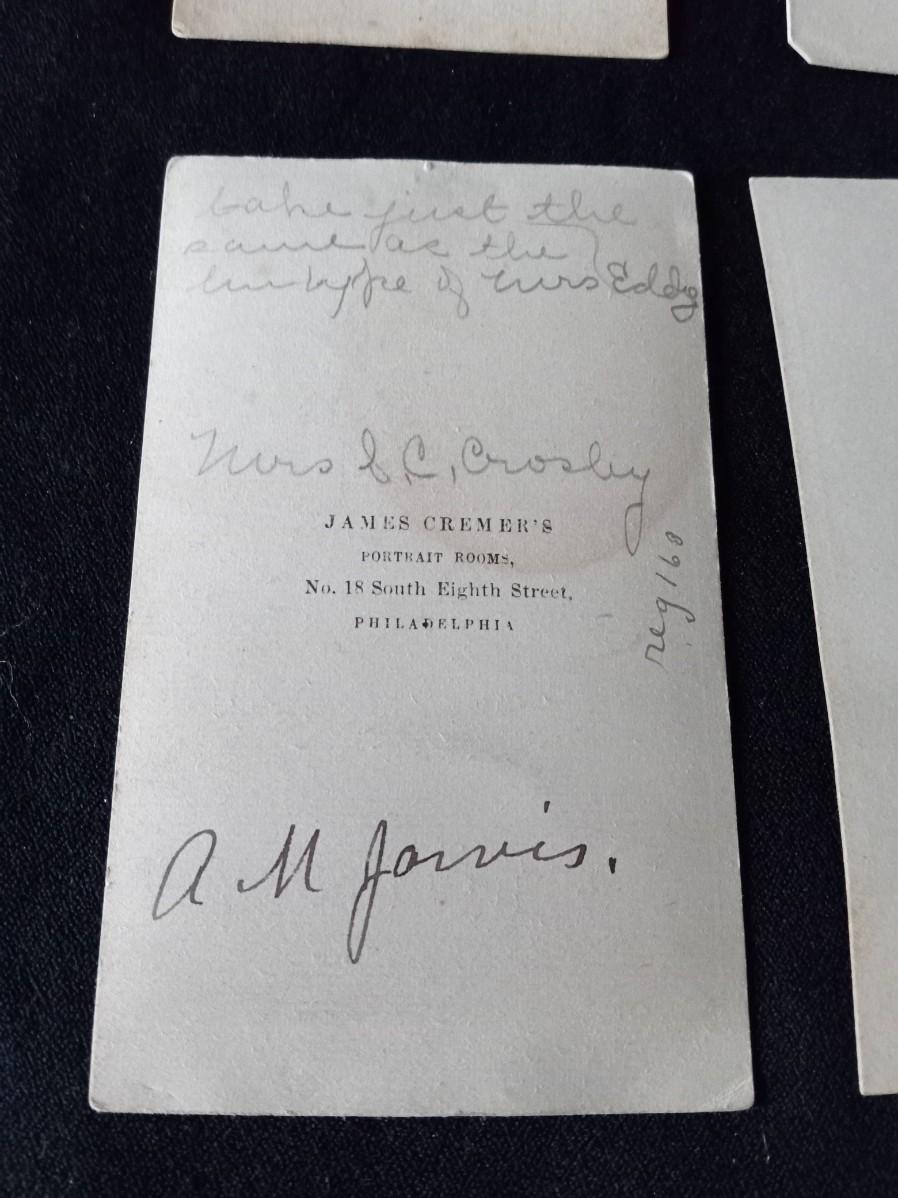 take just the
same as the
tintype of Mrs Eddy
Mrs S, C, Crosby
JAMES CREMER'S
PORTRAIT ROOMS,
No. 18 South Eighth Street,
PHILADELPHIA
reg 168
A M Jarvis.